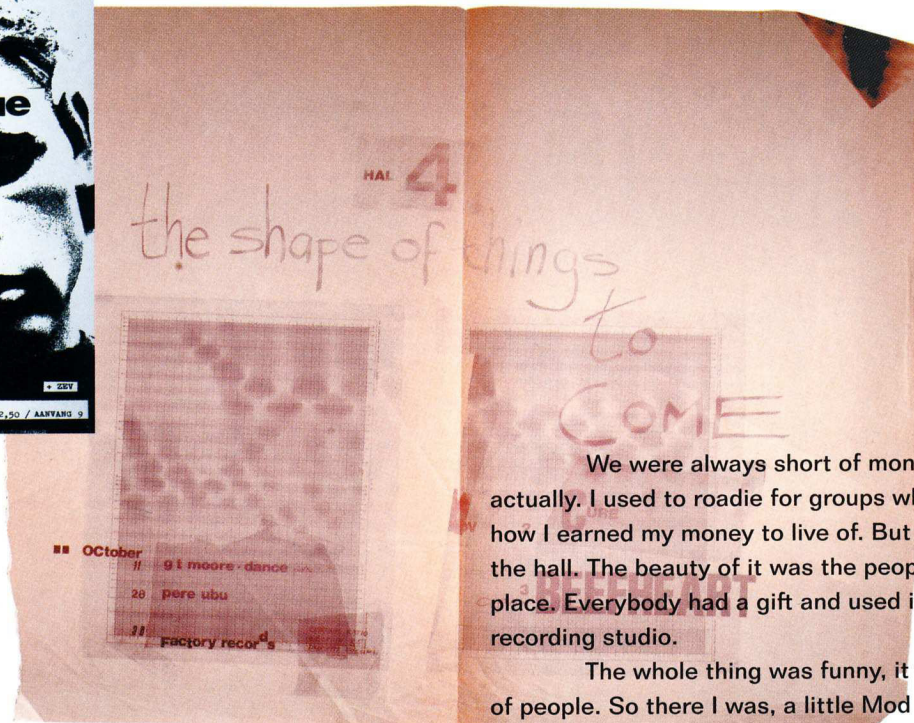 ue
+ ZEV
2,50 / AANVANG 9
HAL 4
the shape of things
to
COME
October
11 gt moore - dance
20 pere ubu
Factory records
NOV 2 CURE
3 BEEFHEART
We were always short of mon
actually. I used to roadie for groups wh
how I earned my money to live of. But
the hall. The beauty of it was the peop
place. Everybody had a gift and used i
recording studio.
The whole thing was funny, it
of people. So there I was, a little Mod